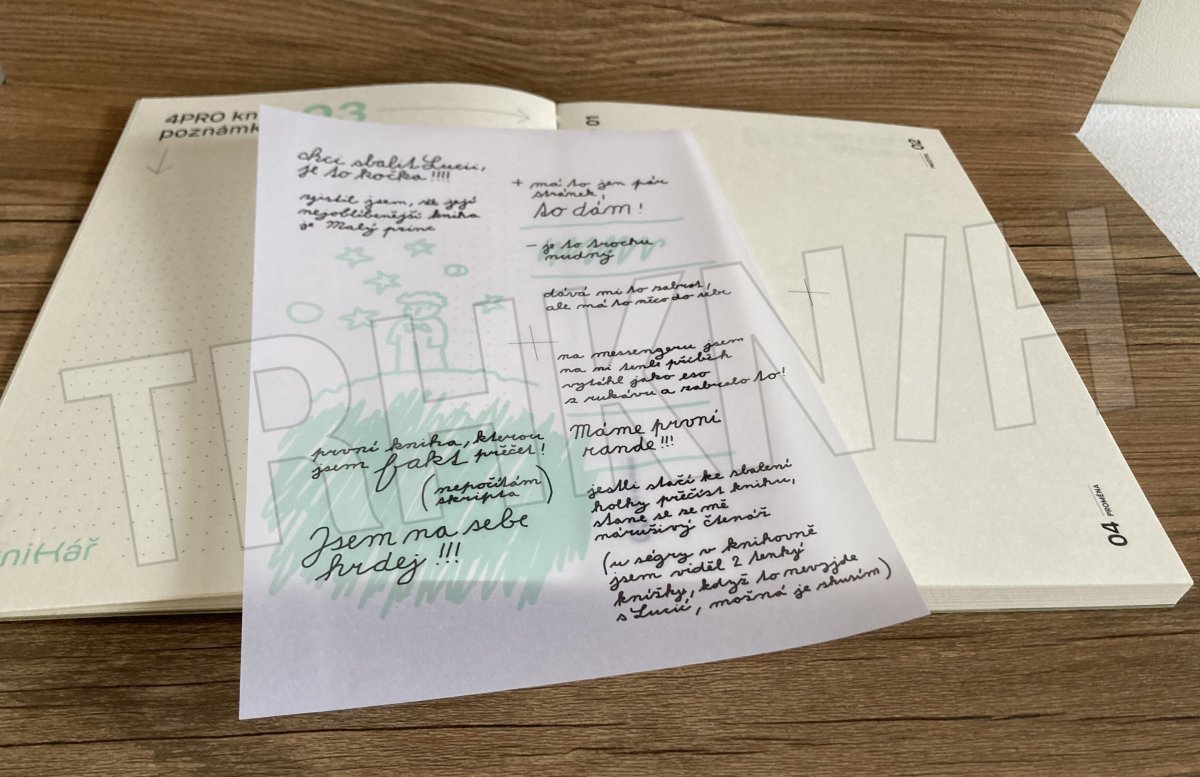 4PRO kn
poznámk
03
chci sbalit Lucii,
je to kočka!!!!
zjistil jsem, že její
nejoblíbenější kniha
je Malý princ
první kniha, kterou
jsem fakt přečet!
(nepočítám
skripta)
Jsem na sebe
hrdej!!!
+ má to jen pár
stránek!
to dám!
- je to trochu
nudný
dává mi to zabrat,
ale má to něco do sebe
na messengeru jsem
na ni tenle příběh
vytáhl jako eso
z rukávu a zabralo to!
Máme první
rande!!!
jestli stačí ke sbalení
holky přečíst knihu,
stane se ze mě
náruživý čtenář
(u ségry v knihovně
jsem viděl 2 tenký
knížky, když to nevyjde
s Lucií, možná je zkusím)
niHář
01
02
04 PROMĚNA
TRHKNIH